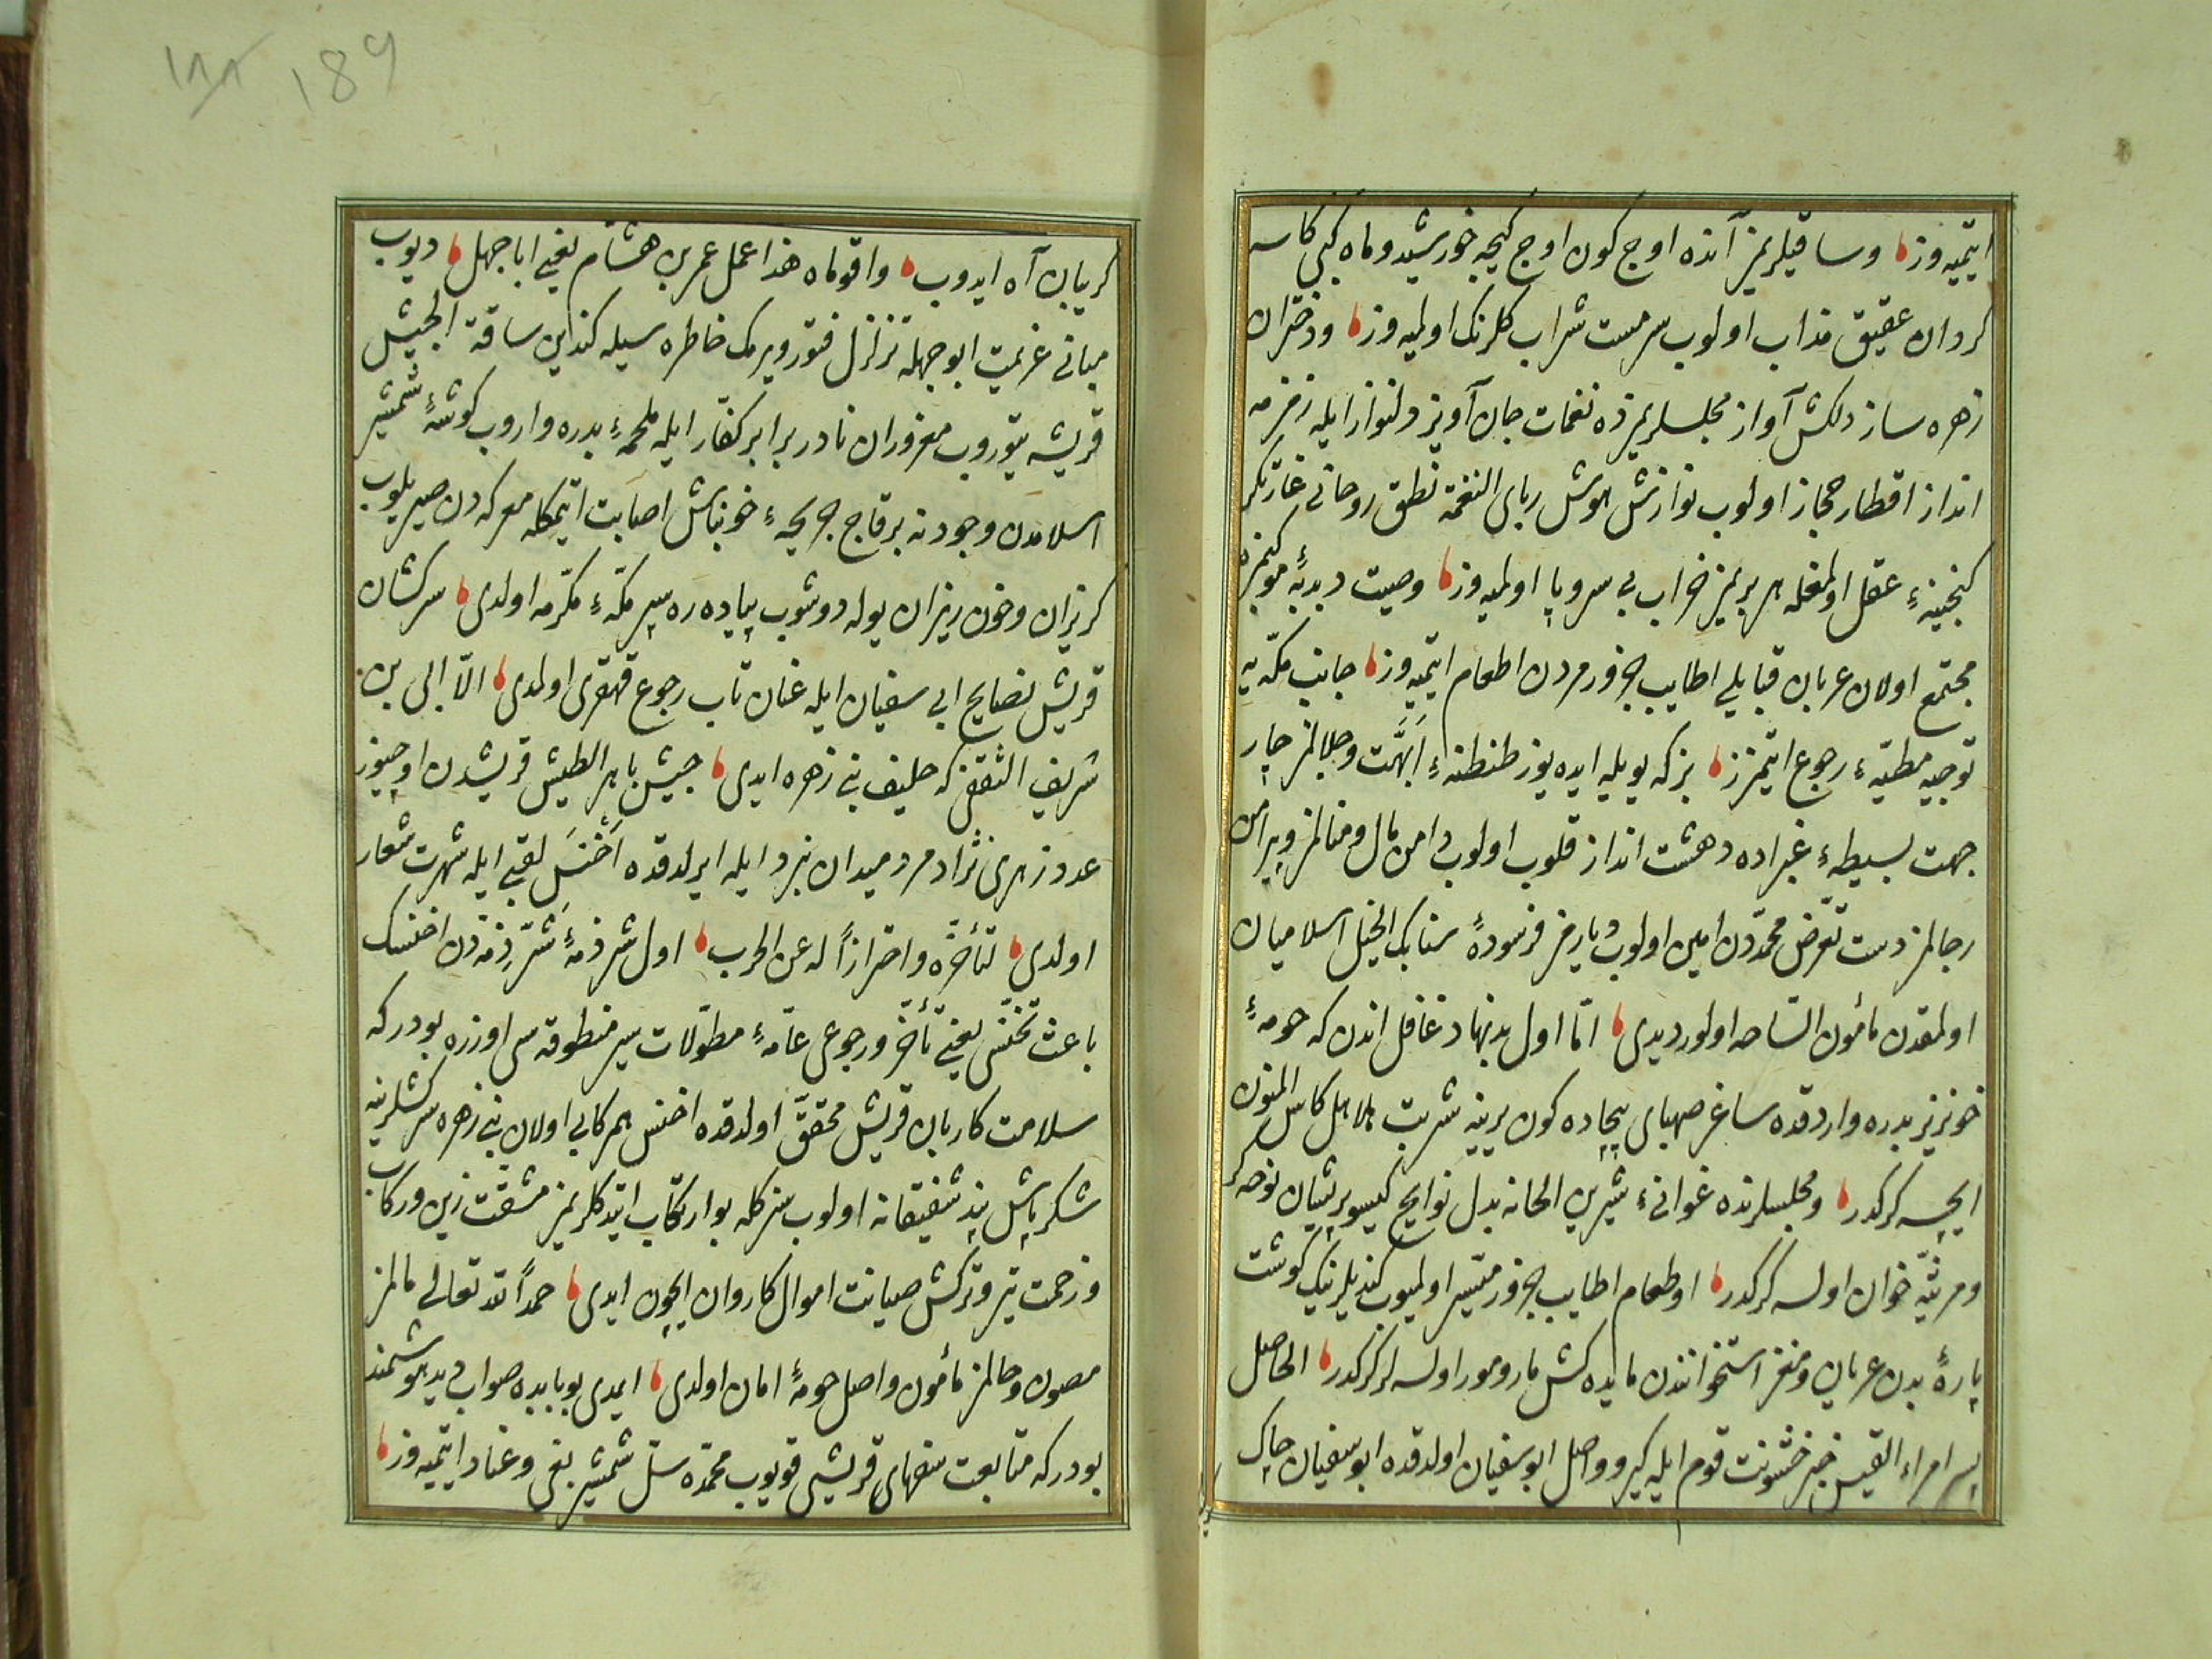 ایتمیه‌وز و ساقیلریمز آنده اوج کون اوج کیجه خورشید و ماه کبی کاسه
کردان عقیق مذاب اولوب سرمست شراب کلرنک اولمیه‌وز و دختران
زهره ساز دلکش آواز مجلسلریمزده نغمات جان آویز دلنواز ایله زمزمه
انداز اقطار حجاز اولوب نوازش هوش ربای النغمة نطق روحانی غارتکر
کنجینهٔ عقل اولمغله هر بریمز خراب بی سر و پا اولمیه‌وز وصیت دبدبهٔ موکبمزه
مجتمع اولان عربان قبایلی اطایب جزورمزدن اطعام ایتمیه‌وز جانب مکّه‌یه
توجیه مطیّهٔ رجوع ایتمزز بز که بویله ایده‌یوز طنطنهٔ اَبهَّت و جلالمز چار
جهت بسیطهٔ غبراده دهشت انداز قلوب اولوب دامن مال و منالمز و پیرامن
رجالمز دست تعرّض محمّددن امین اولوب دیارمز فرسودهٔ سنابک الخیل اسلامیان
اولمقدن مأمون السّاحه اولور دیدی امّا اول بدنهاد غافل اندن که حومهٔ
خونریز بدره واردقده ساغر صهبای بیجاده کون یرینه شربت هلاهل کاس المنون
ایچسه کرکدر و مجلسلرنده غوانیٔ شیرین الحانه بدل نوایح کیسو پریشان نوحه‌کر
و مرثیّه خوان اولسه کرکدر و اطعام اطایب جزور میّسر اولمیوب کندیلرینک کوشت
پارهٔ بدن عریان و مغز استخوانندن مایده کش مار و مور اولسه‌لر کرکدر الحاصل
پسر امراء القیس خبر خشونت قوم ایله کیرو واصل ابو سفیان اولدقده ابو سفیان چاک
189
کریبان آه ایدوب واقوماه هذا عمل عمر بن هشام یعنی ابا جهل دیوب
مبانی عزیمت ابو جهله تزلزل فتور ویرمک خاطره‌سیله کندین ساقة الجیش
قریشه یتوروب مغروران نادر برابر کفّار ایله ملحمهٔ بدره واروب کوشهٔ شمشیر
اسلامدن وجودنه بر قاج جریحهٔ خونپاش اصابت ایتمکله معرکه‌دن صیریلوب
کریزان و خون ریزان یوله دوشوب پیاده ره سپر مکّهٔ مکرّمه اولدی سرکشان
قریش نصایح ابی سفیان ایله عنان تاب رجوع قهقری اولمدی الّا ابی بن
شریف الثقفی که حلیف بنی زهره ایدی جیش باهر الطیش قریشدن اوچیوز
عدد زهری نژاد مرد میدان نبرد ایله ایرلدقده اَخْنَسَ لقبی ایله شهرت شعار
اولدی لتأخرّه واحترازاً له عن الحرب اول شرذمهٔ شَرّذِمَه‌دن اخنسک
باعث تخنّس یعنی تأخّر و رجوعی عامّهٔ مطوّلات سیر منطوقه‌سی اوزره بودر که
سلامت کاربان قریش محقّق اولدقده اخنس همرکابی اولان بنی زهره سرکشلرینه
شکرپاش پند شفیقانه اولوب سز کله بو ارتکاب ایتدکلریمز مشقّت زین و رکاب
و زحمت تیر و ترکش صیانت اموال کاروان ایچون ایدی حمداً لله تعالی مالمز
مصون و حالمز مأمون و اصل حومهٔ امان اولدی ایمدی بو بابده صوابدید هوشمند
بودر که متابعت سفهای قریشی قویوب محمّده سلّ شمشیر بغی و عناد ایتمیه‌وز